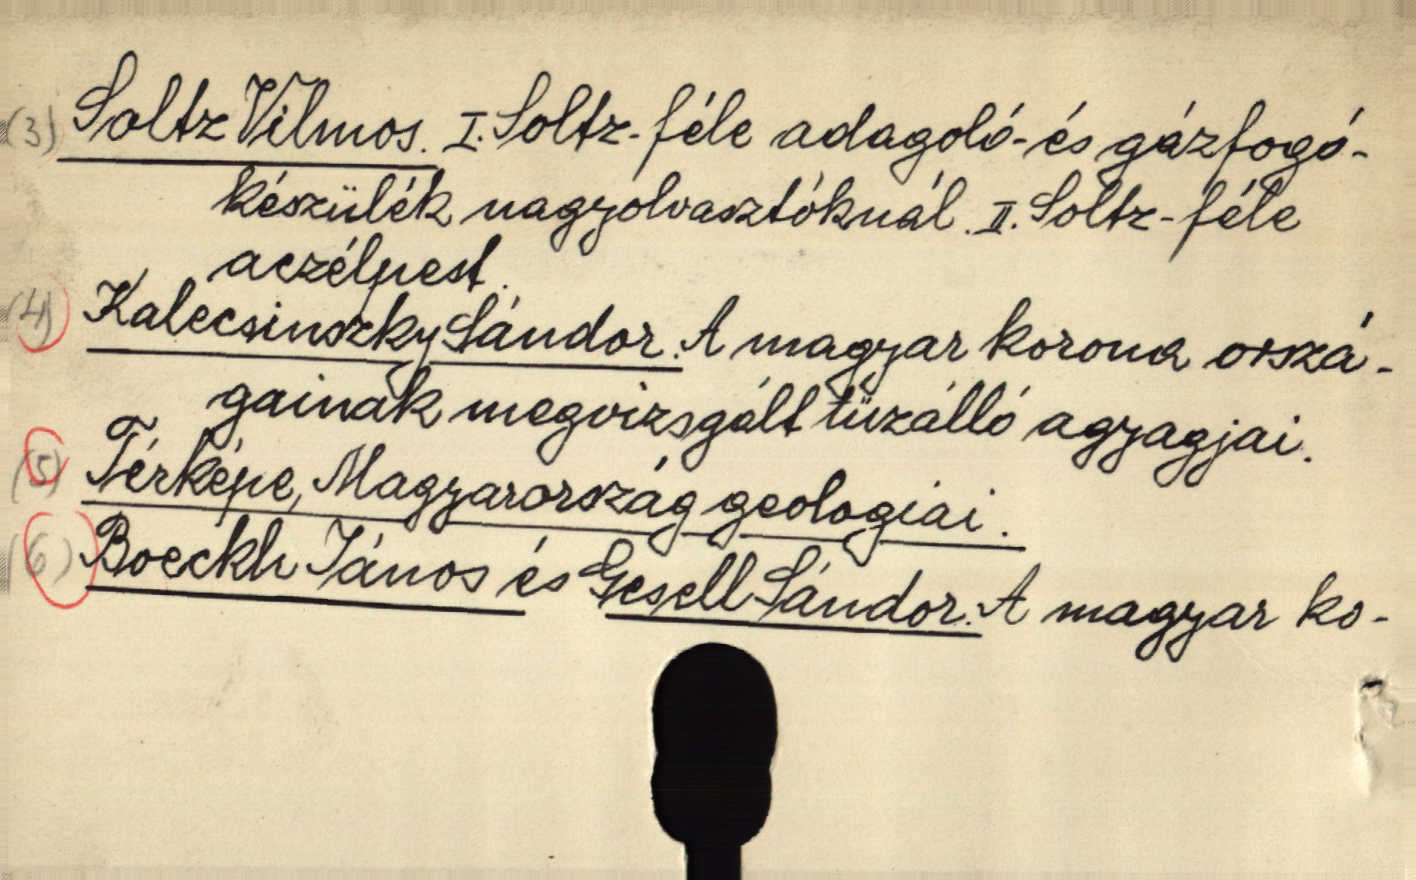 (3) Soltz Vilmos. I. Soltz-féle adagoló- és gázfogó-
készülék nagyolvasztóknál. II. Soltz-féle
aczélpest.
(4) Kalecsinszky Sándor. A magyar korona orszá-
gainak megvizsgált tüzálló agyagjai.
(5) Térképe, Magyarország geologiai.
(6) Boeckh János és Gesell Sándor. A magyar ko-